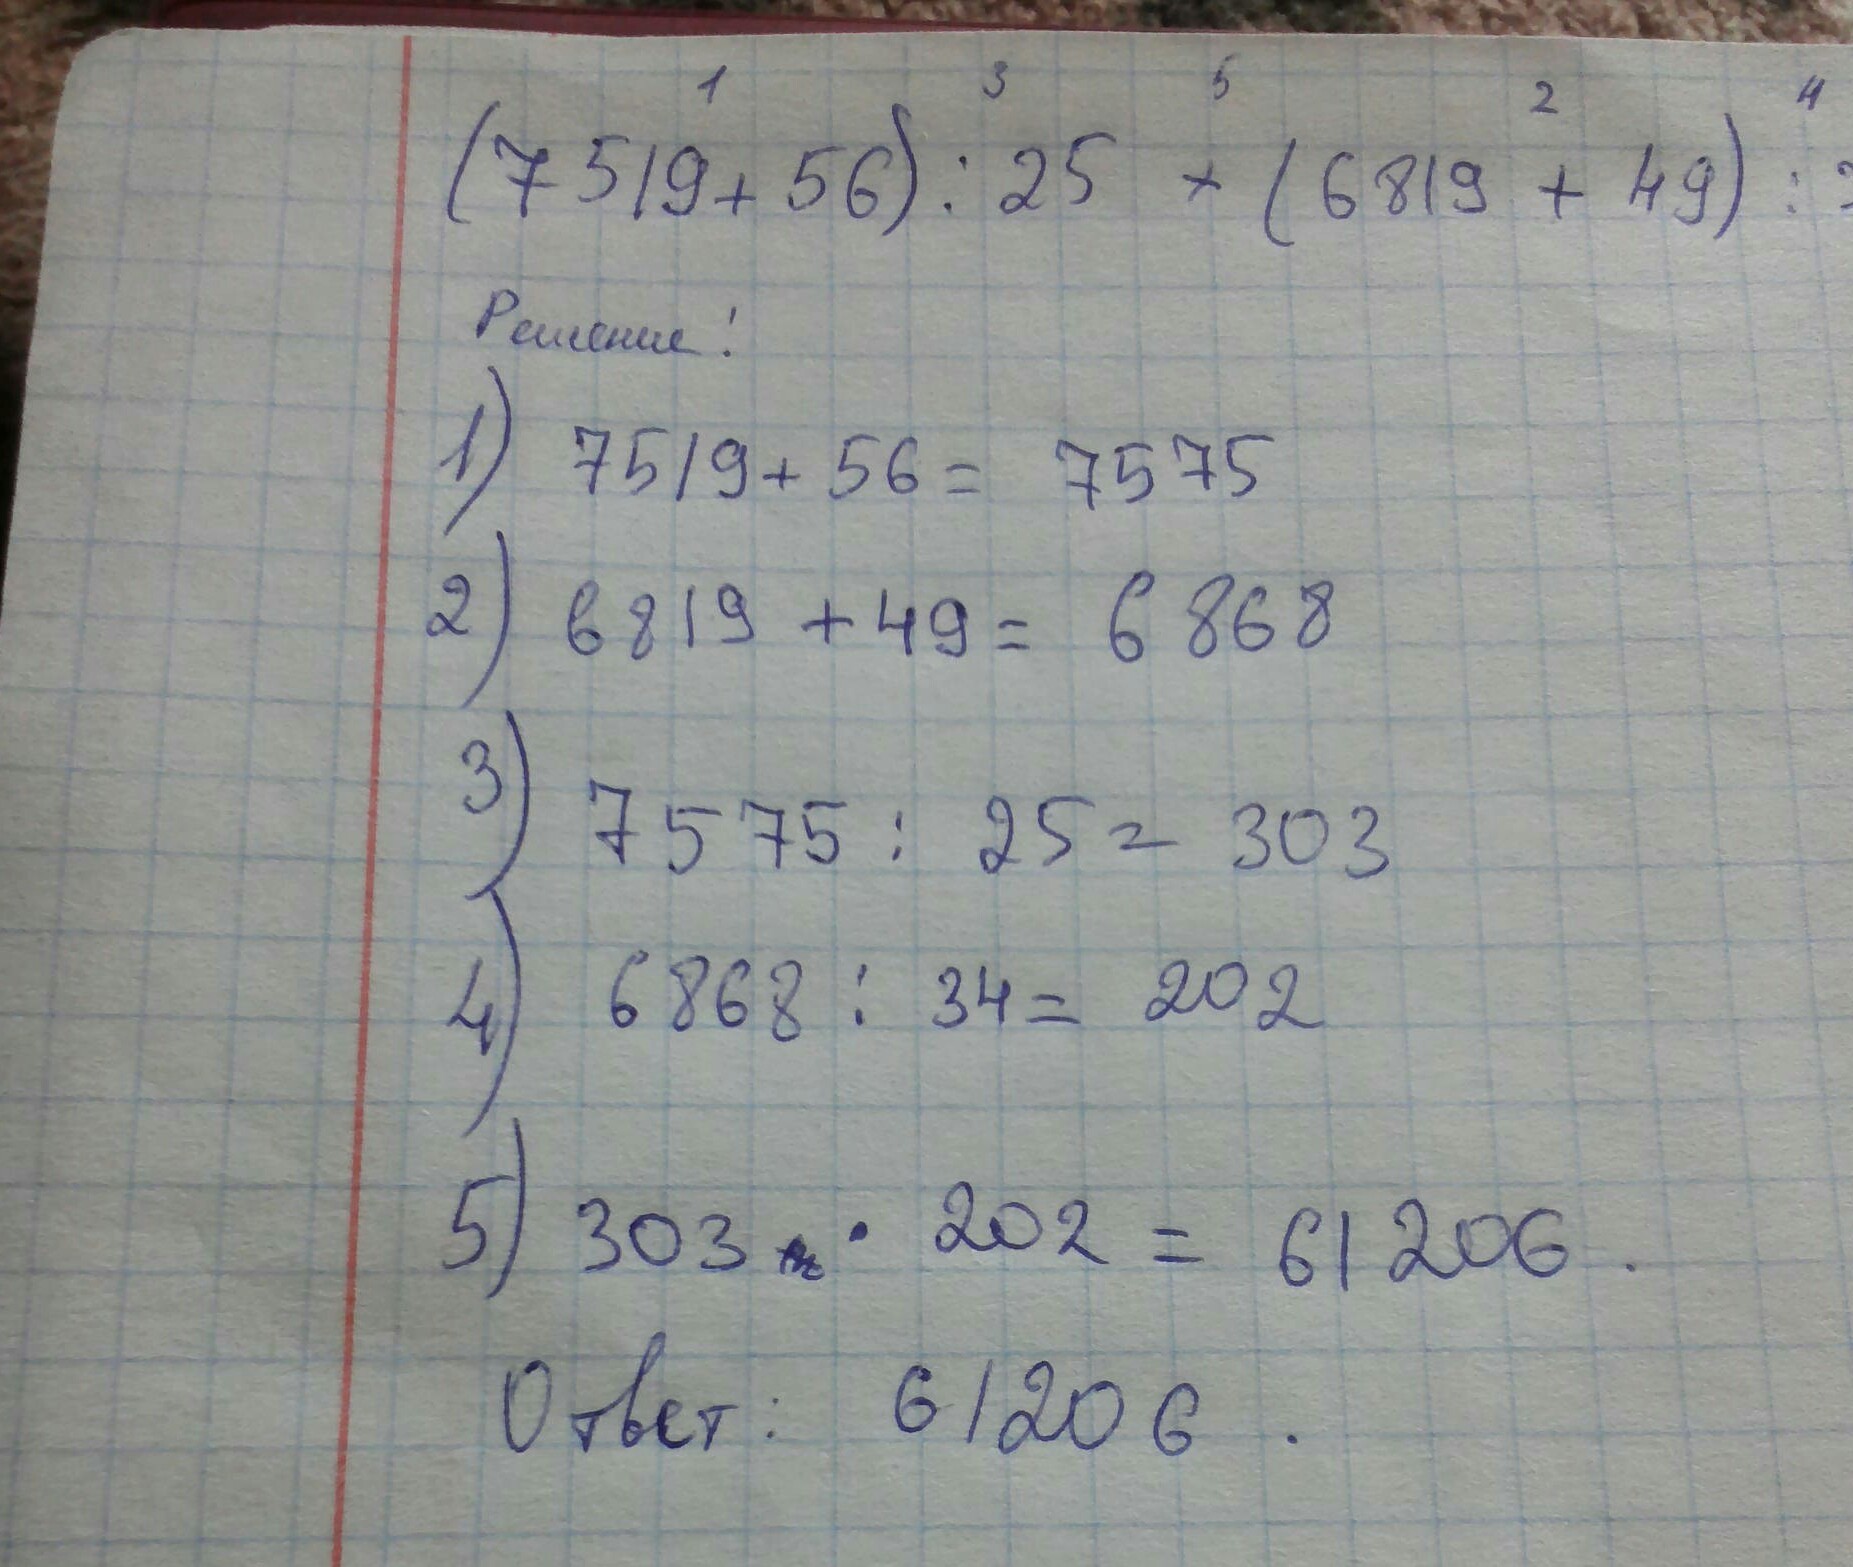 1 3 5 2 4
(7519+56) : 25 × (6819 + 49) :
Решение:
1) 7519 + 56 = 7575
2) 6819 + 49 = 6868
3) 7575 : 25 = 303
4) 6868 : 34 = 202
5) 303 · 202 = 61206.
Ответ: 61206.